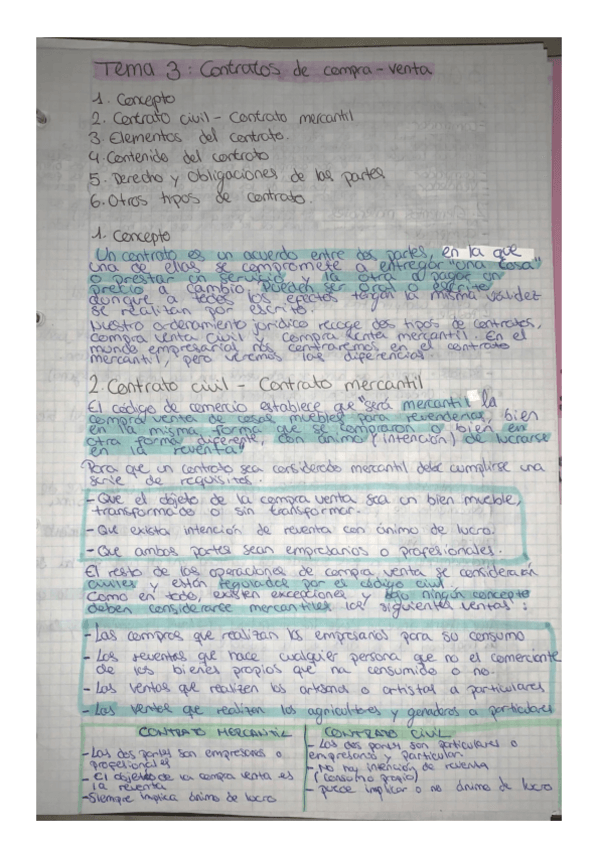 Tema 3: Contratos de compra-venta
1. Concepto
2. Contrato civil - Contrato mercantil
3. Elementos del contrato.
4. Contenido del contrato
5. Derecho y obligaciones de las partes
6. Otros tipos de contrato.
1. Concepto
Un contrato es un acuerdo entre dos partes, en la que
una de ellas se compromete a entregar "una cosa"
o prestar un servicio y la otra a pagar un
precio a cambio. Pueden ser oral o escrito
aunque a todos los efectos tengan la misma validez
se realizan por escrito.
Nuestro ordenamiento jurídico recoge dos tipos de contratos,
compra venta civil y compra venta mercantil. En el
mundo empresarial nos centraremos en el contrato
mercantil, pero veremos las diferencias.
2. Contrato civil - Contrato mercantil
El código de comercio establece que "será mercantil la
compra venta de cosas muebles para revenderlas, bien
en la misma forma que se compraron o bien en
otra forma diferente, con ánimo (intención) de lucrarse
en la reventa"
Para que un contrato sea considerado mercantil debe cumplirse una
serie de requisitos.
- Que el objeto de la compra venta sea un bien mueble,
transformado o sin transformar.
- Que exista intención de reventa con ánimo de lucro.
- Que ambos partes sean empresarios o profesionales.
El resto de las operaciones de compra venta se considerarán
civiles y están reguladas por el código civil.
Como en todo, existen excepciones y bajo ningún concepto
deben considerarse mercantiles las siguientes ventas:
- Las compras que realizan los empresarios para su consumo
- Las reventas que hace cualquier persona que no el comerciante
de los bienes propios que na consumido o no.
- Las ventas que realizen los artesanos o artistas a particulares
- Las ventas que realizen los agricultores y ganaderos a particulares
CONTRATO MERCANTIL
- Las dos partes son empresarios o
profesionales
- El objeto de la compra venta es
la reventa
- Siempre implica ánimo de lucro
CONTRATO CIVIL
- Las dos partes son particulares o
empresario y particular
- No hay intención de reventa
(consumo propio)
- puede implicar o no ánimo de lucro